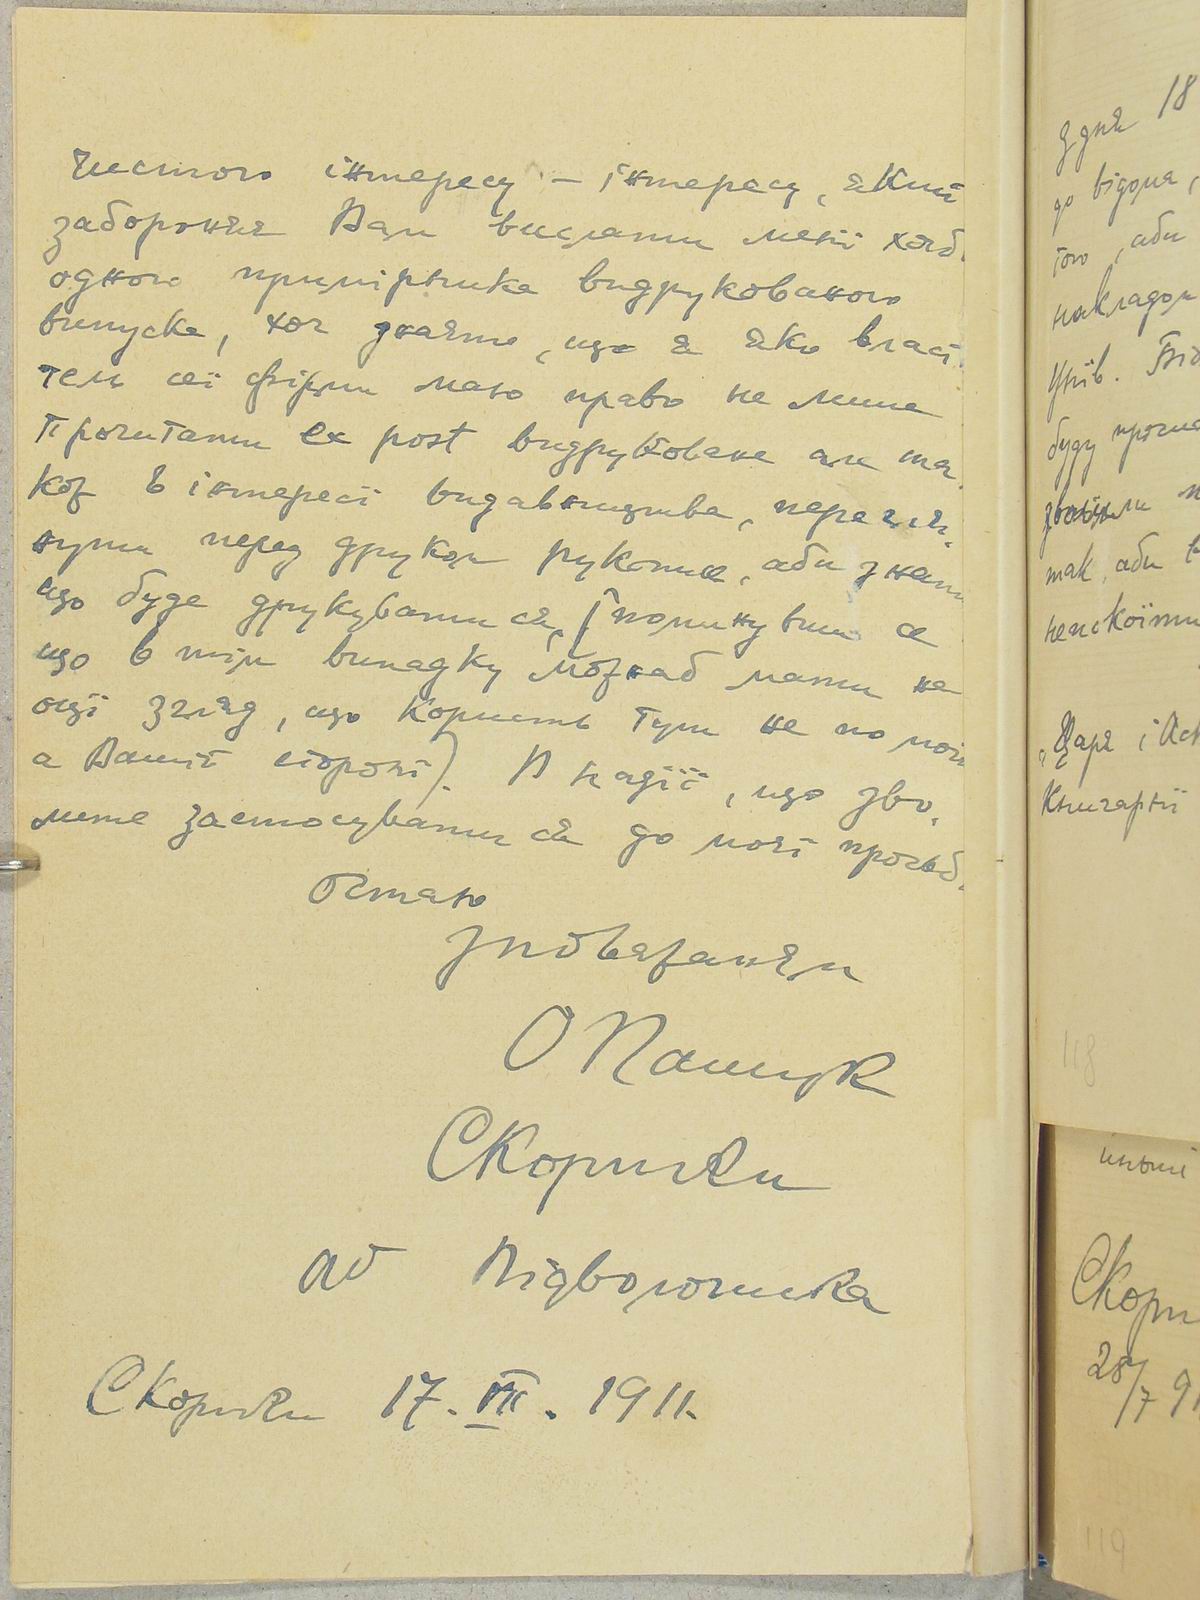 чистого інтересу – інтересу, який
забороняє Вам вислати мені хоѓб
одного примірника видрукованого
випуска, хоч знаєте, що я яко власти
тель сеї фірми маю право не лише
прочитати ex post видруковане але та
кож в інтересі видавництва, перегля-
нути перед друком рукопис, аби знати
що буде друкувати ся, (поминувши се
що в тім випадку можнаб мати на
оці згляд, що користь тут не по моїй
а Вашій стороні). В надії, що зво-
лите застосувати ся до моєї просьб.
остаю
з поважанєм
О Пашук
Скорики
ad Підволочиска
Скорики 17. VII. 1911.
З днем 18
до відома,
того, аби
накладом
Унів. Биб
буду
так, аби
непокоїти
"Царя і
Книгарні
118
Скори
28/7 91
119